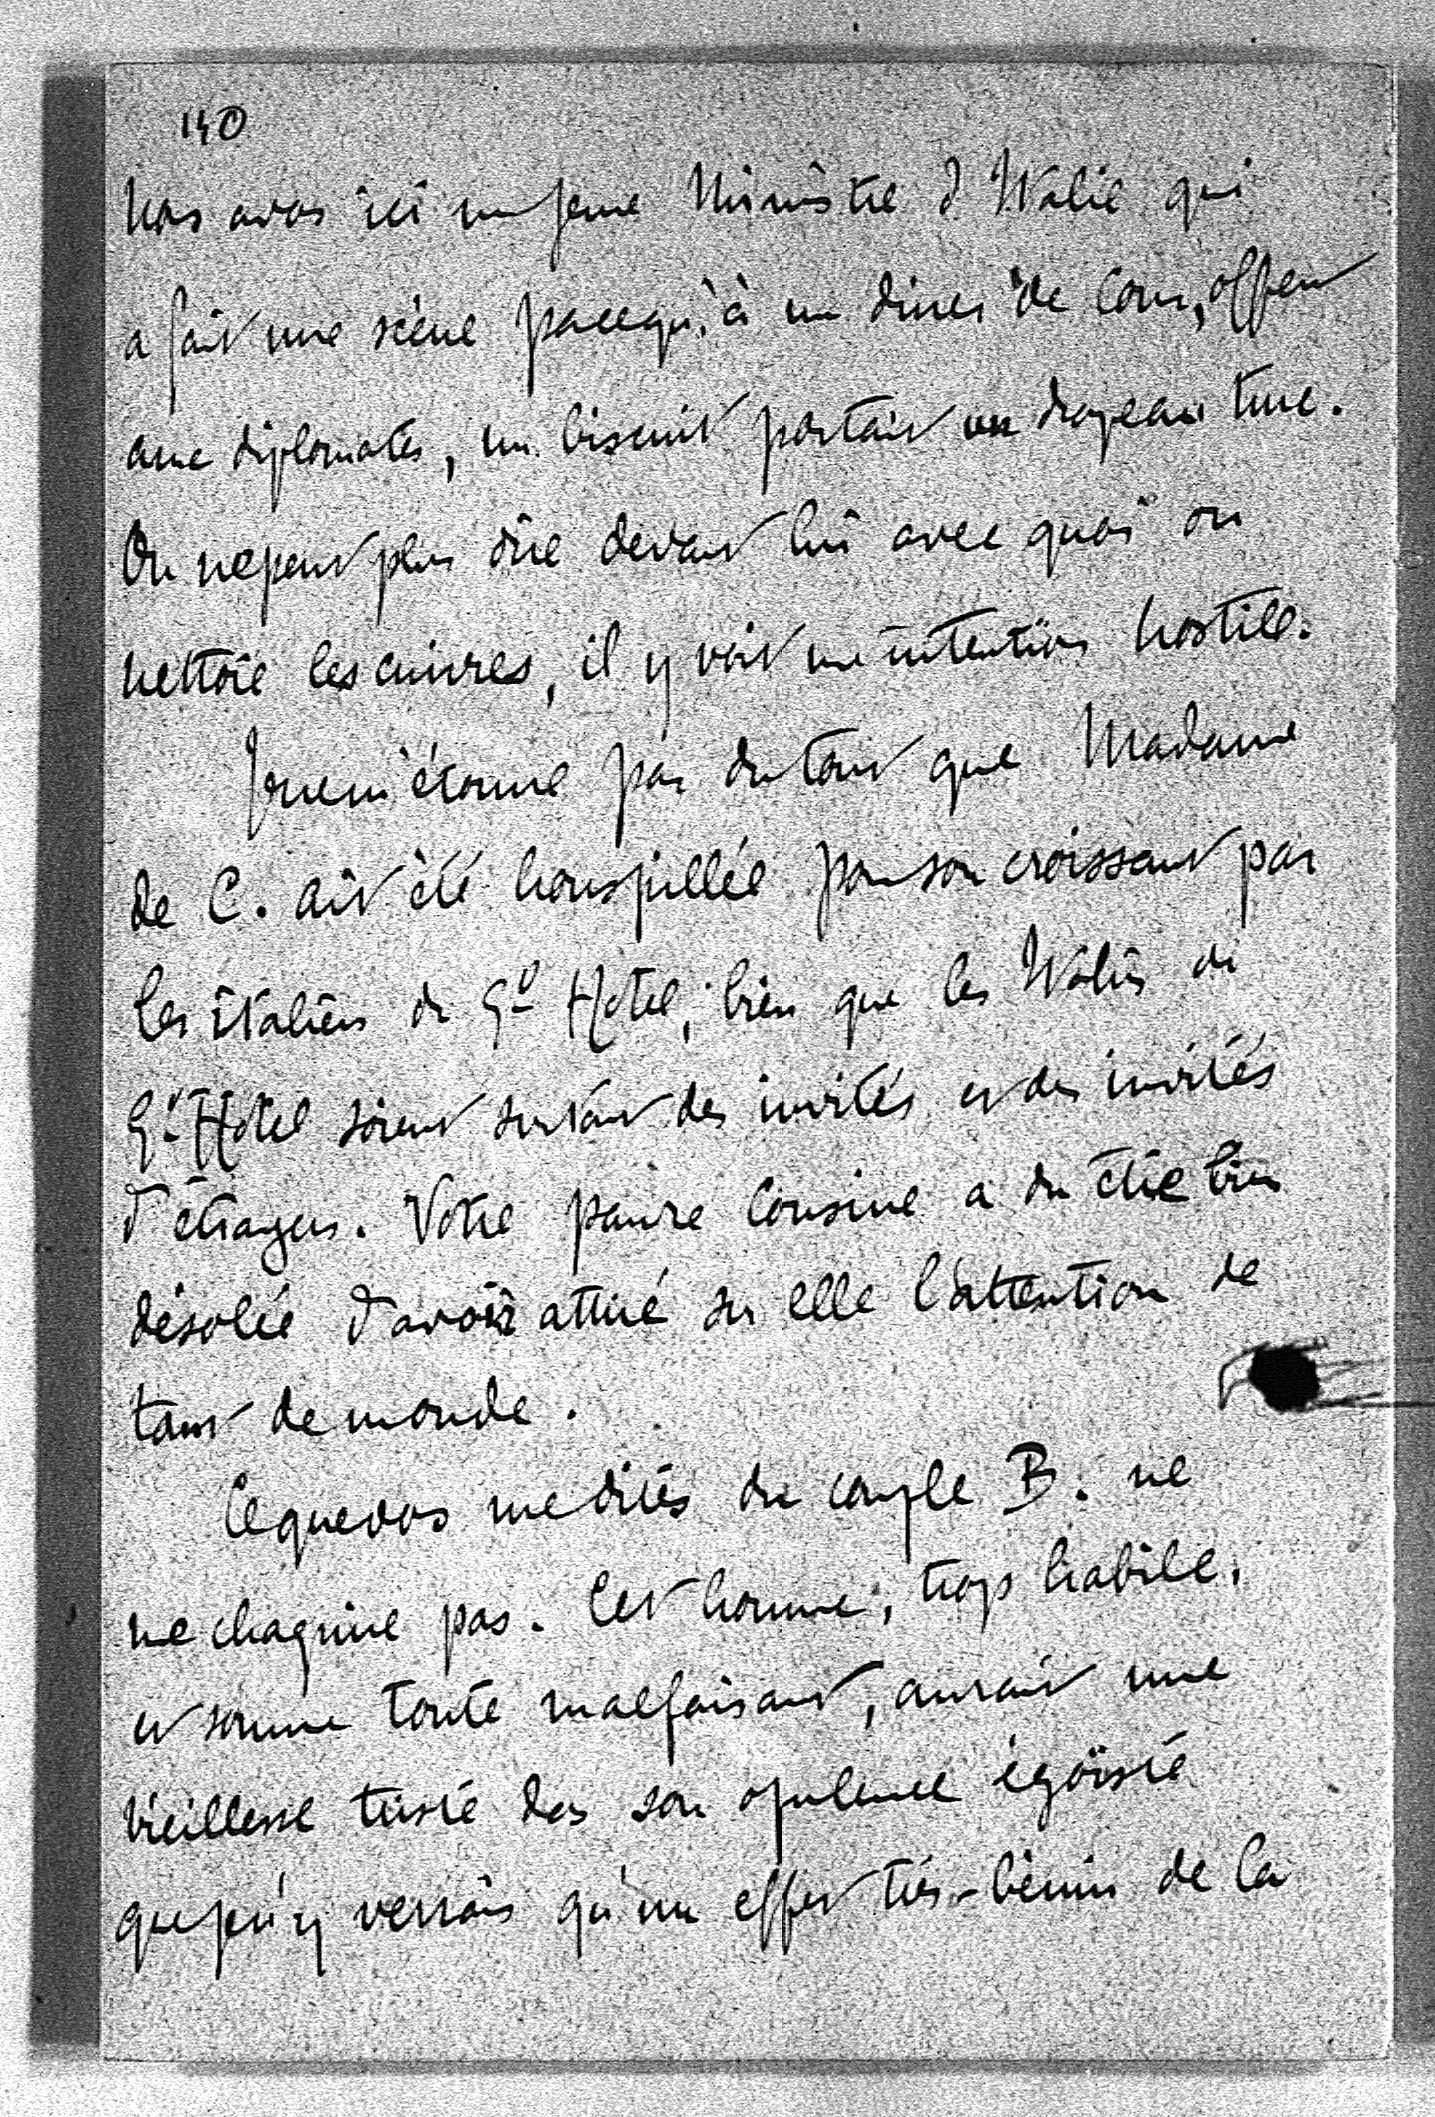 140
Nous avons ici un jeune Ministre d'Italie qui
a fait une scène parcequ'à un diner de Cour, offert
aux diplomates, un biscuit portait un drapeau turc.
On ne peut plus dire devant lui avec quoi on
nettoie les cuivres, il y voit une intention hostile.
Je ne m'étonne pas du tout que Madame
de C. ait été houspillée pour son croissant par
les italiens du Gd Hotel, bien que les Italiens du
Gd Hotel soient surtout des invités et des invités
d'étrangers. Votre pauvre Cousine a du être bien
désolée d'avoir attiré sur elle l'attention de
tant de monde.
Ce que vous me dites du couple B. ne
me chagrine pas. Cet homme, trop habile,
et somme toute malfaisant, aurait une
vieillesse triste dans son opulence égoïste
que je n'y verrais qu'un effet très-bénin de la